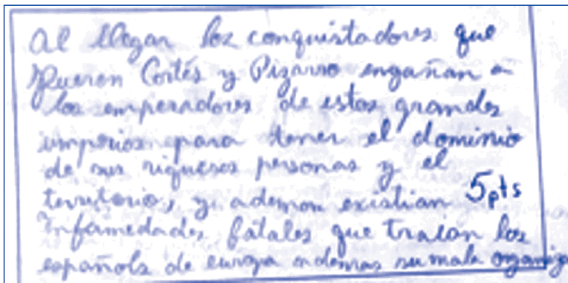 Al llegar los conquistadores que
fueron Cortés y Pizarro engañan a
los emperadores de estos grandes
imperios para tener el dominio
de sus riquesas personas y el
territorio, y ademas existian 5pts
Infamedades fatales que traian los
español de europa ademas su mala organiza